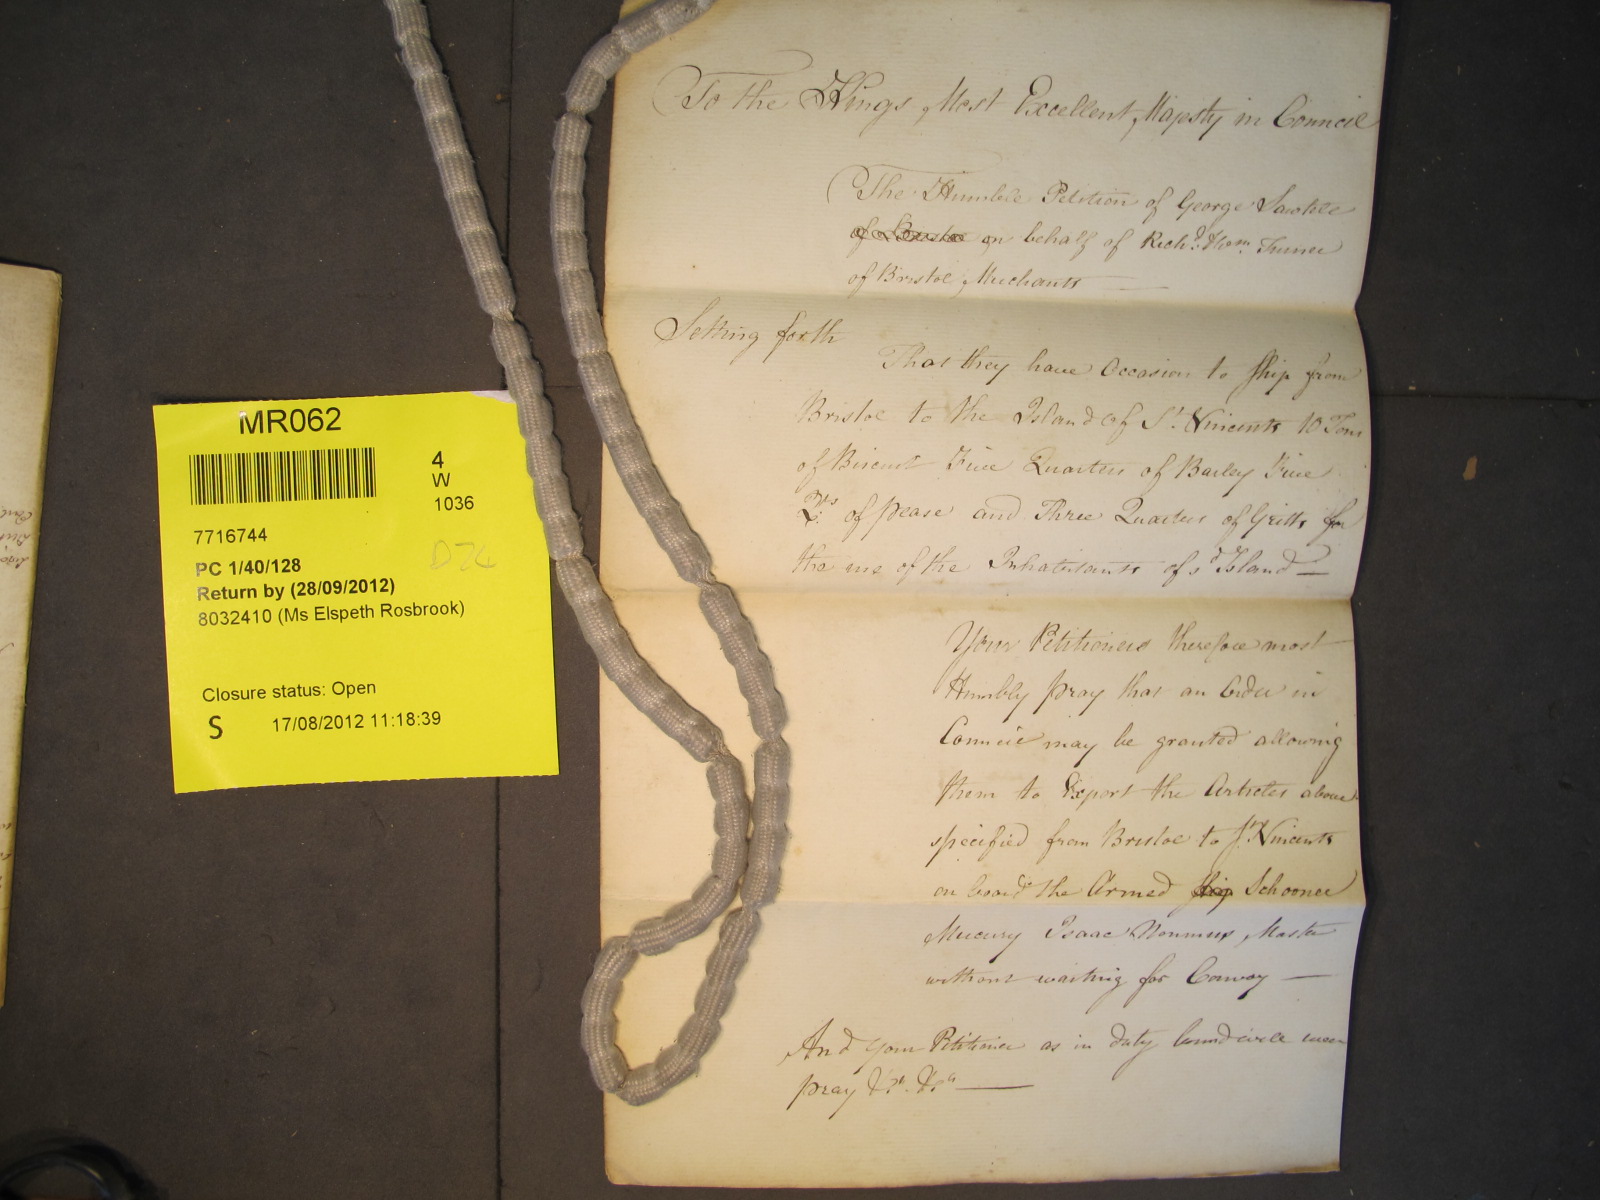 MR062
4
W
1036
7716744
D76
PC 1/40/128
Return by (28/09/2012)
8032410 (Ms Elspeth Rosbrook)
Closure status: Open
S 17/08/2012 11:18:39
To the Kings Most Excellent Majesty in Council
The Humble Petition of George Sawtele
of on behalf of Richd. Thom. Turner
of Bristol, Merchants
Setting forth
That they have Occasion to ship from
Bristol to the Island of St. Vincents 10 Tons
of Biscuit Five Quarters of Barley Five
Qrs. of pease and Three Quarters of Gritts for
the use of the Inhabitants of sd. Island
Your Petitioners therefore most
Humbly pray that an Order in
Council may be granted allowing
them to Export the Articles above
specified from Bristol to St. Vincents
on board the Armed ship Schooner
Mercury Isaac Master
without waiting for Convoy
And your Petitioner as in duty bound will ever
pray &c. &ca